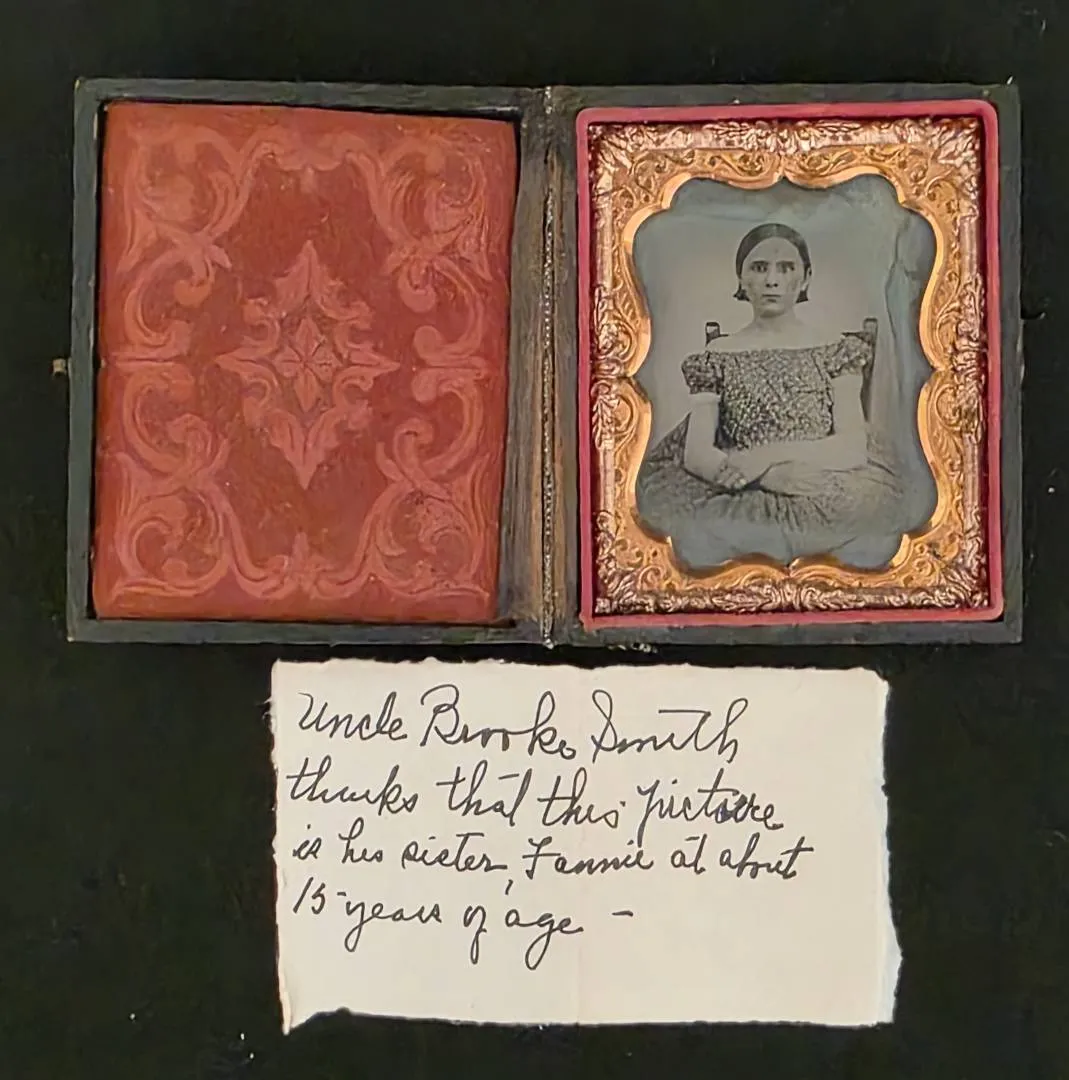 Uncle Brooke Smith
thinks that this picture
is his sister, Fannie at about
15 years of age —